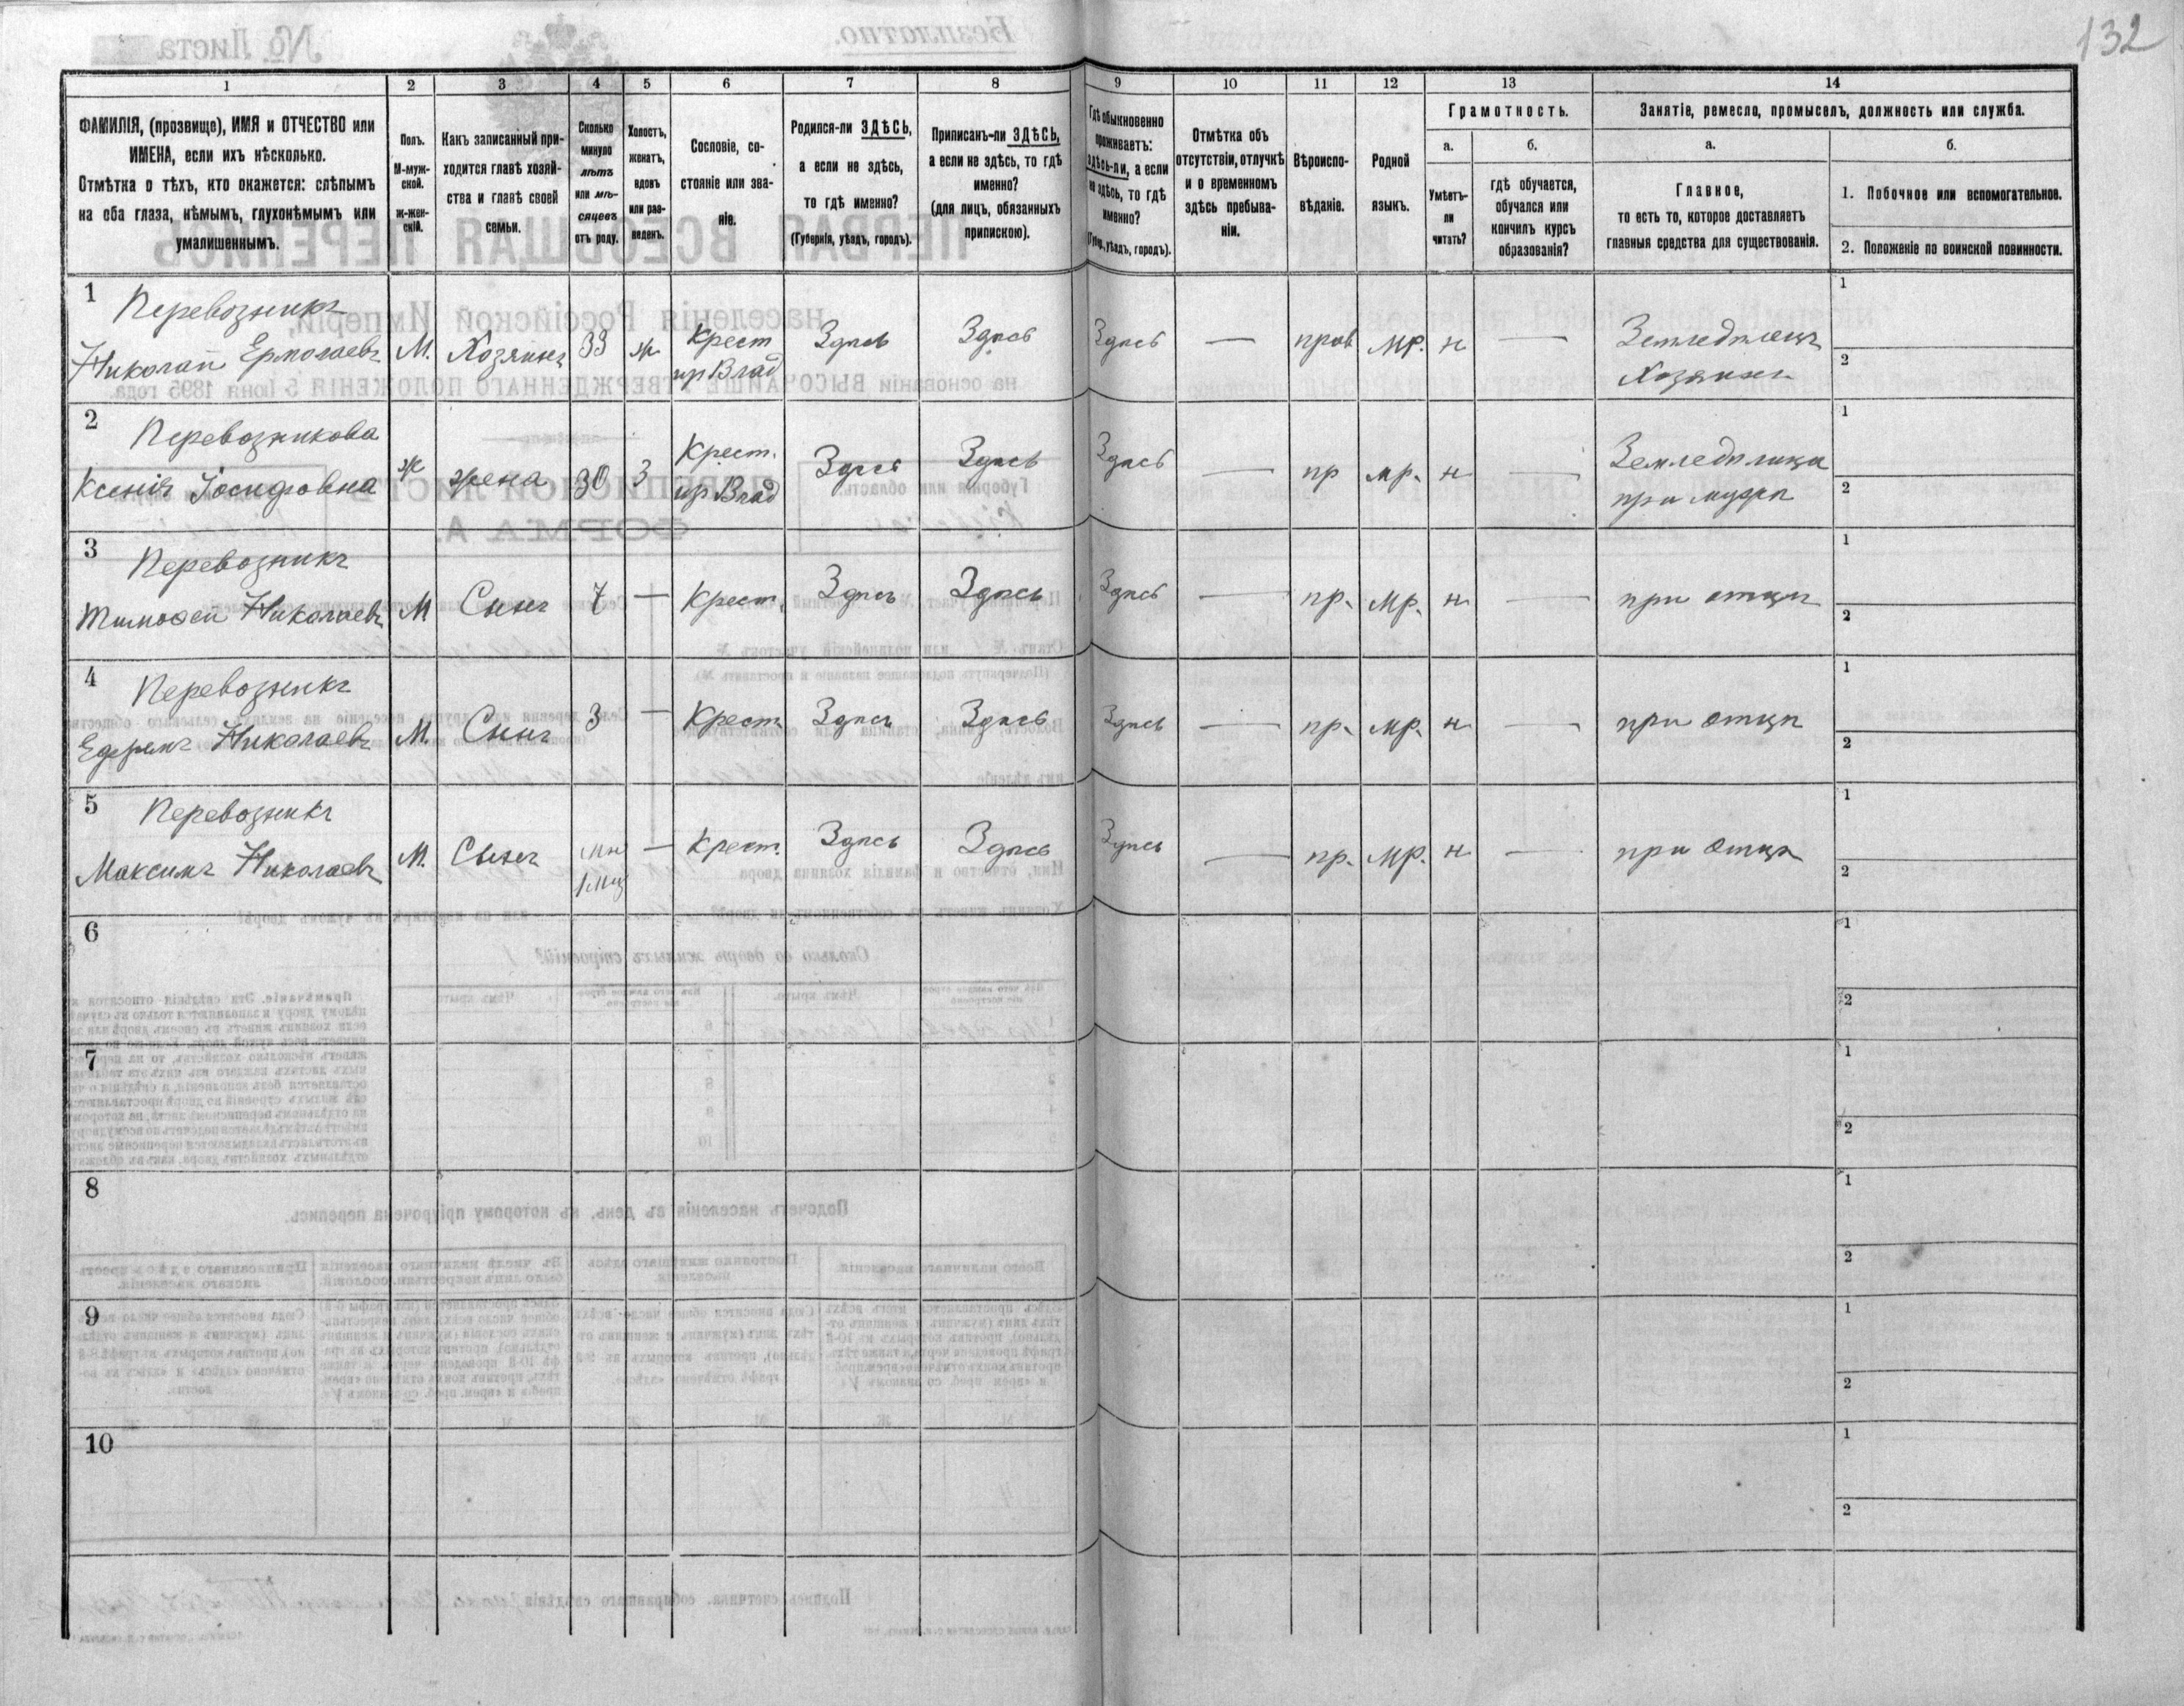 132
1
2
3
4
5
6
7
8
9
10
11
12
13
14
ФАМИЛІЯ, (прозвище), ИМЯ и ОТЧЕСТВО или
ИМЕНА, если ихъ нѣсколько.
Отмѣтка о тѣхъ, кто окажется: слѣпымъ
на оба глаза, нѣмымъ, глухонѣмымъ или
умалишеннымъ.
Полъ.
М-муж-
ской.
Ж-жен-
скій.
Какъ записанный при-
ходится главѣ хозяй-
ства и главѣ своей
семьи.
Сколько
минуло
лѣтъ
или мѣ-
сяцевъ
отъ роду.
Холостъ,
женатъ,
вдовъ
или раз-
веденъ.
Сословіе, со-
стояніе или зва-
ніе.
Родился-ли ЗДѢСЬ,
а если не здѣсь,
то гдѣ именно?
(Губернія, уѣздъ, городъ).
Приписанъ-ли ЗДѢСЬ,
а если не здѣсь, то гдѣ
именно?
(для лицъ, обязанныхъ
припискою).
Гдѣ обыкновенно
проживаетъ:
здѣсь-ли, а если
не здѣсь, то гдѣ
именно?
(Губер., уѣздъ, городъ).
Отмѣтка объ
отсутствіи, отлучкѣ
и о временномъ
здѣсь пребыва-
ніи.
Вѣроиспо-
вѣданіе.
Родной
языкъ.
Грамотность.
а.
Умѣетъ-
ли
читать?
б.
гдѣ обучается,
обучался или
кончилъ курсъ
образованія?
Занятіе, ремесло, промыселъ, должность или служба.
а.
Главное,
то есть то, которое доставляетъ
главныя средства для существованія.
б.
1. Побочное или вспомогательное.
2. Положеніе по воинской повинности.
1
Перевозникъ
Николай Ермолаевъ М. Хозяинъ 33 ж Крест Здѣсь Здѣсь Здѣсь — прав мр. н — Земледѣлецъ 1
из Влад Хозяинъ 2
2
Перевозникова
Ксенія Іосифовна ж жена 30 З Крест. Здѣсь Здѣсь Здѣсь — пр мр. н — Земледѣлица 1
из Влад при мужѣ 2
3
Перевозникъ
Тимофей Николаевъ М Сынъ 7 — Крест. Здѣсь Здѣсь Здѣсь — пр. мр. н — при отцѣ 1
2
4
Перевозникъ
Ефремъ Николаевъ М. Сынъ 3 — Крест Здѣсь Здѣсь Здѣсь — пр. мр. н — при отцѣ 1
2
5
Перевозникъ
Максимъ Николаевъ М. Сынъ — Крест. Здѣсь Здѣсь Здѣсь — пр. мр. н — при отцѣ 1
2
6 1
2
7 1
2
8 1
2
9 1
2
10 1
2